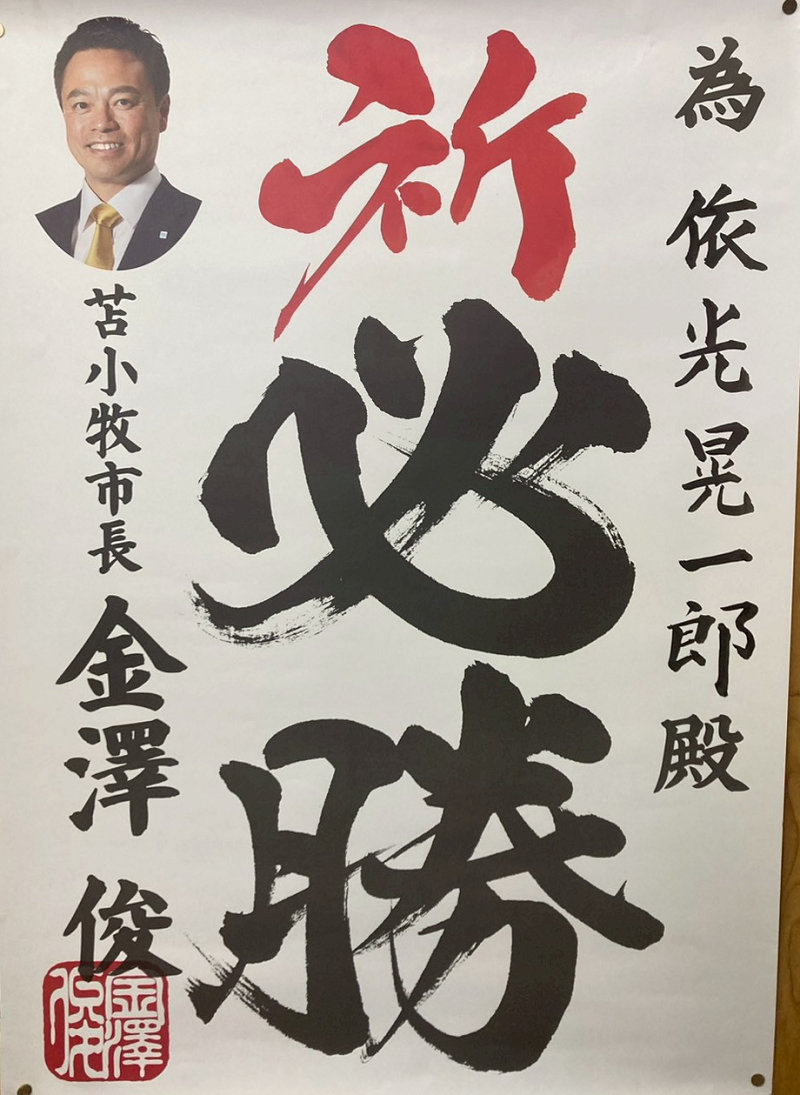 為 依光晃一郎殿
祈必勝
苫小牧市長 金澤 俊
金澤
俊